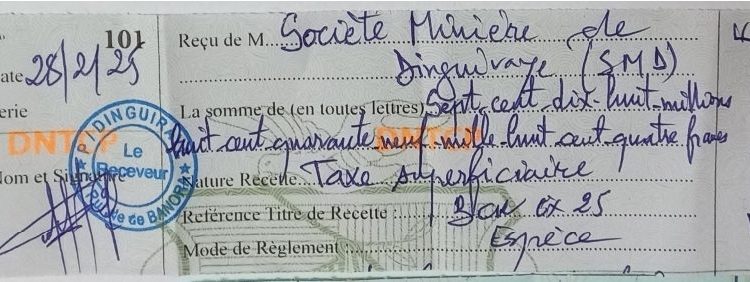 101 Reçu de M. Société Minière de
ate 28/2/25 Dinguiraye (SMD)
erie La somme de (en toutes lettres) Sept cent dix-huit-millions
DNTCP huit cent quarante neuf mille huit cent quatre francs
PIDINGUIRA
Le
Receveur
de BANORA
Nom et Signature Nature Recette Taxe superficiaire
Référence Titre de Recette : ex 25
Mode de Règlement : Espèce